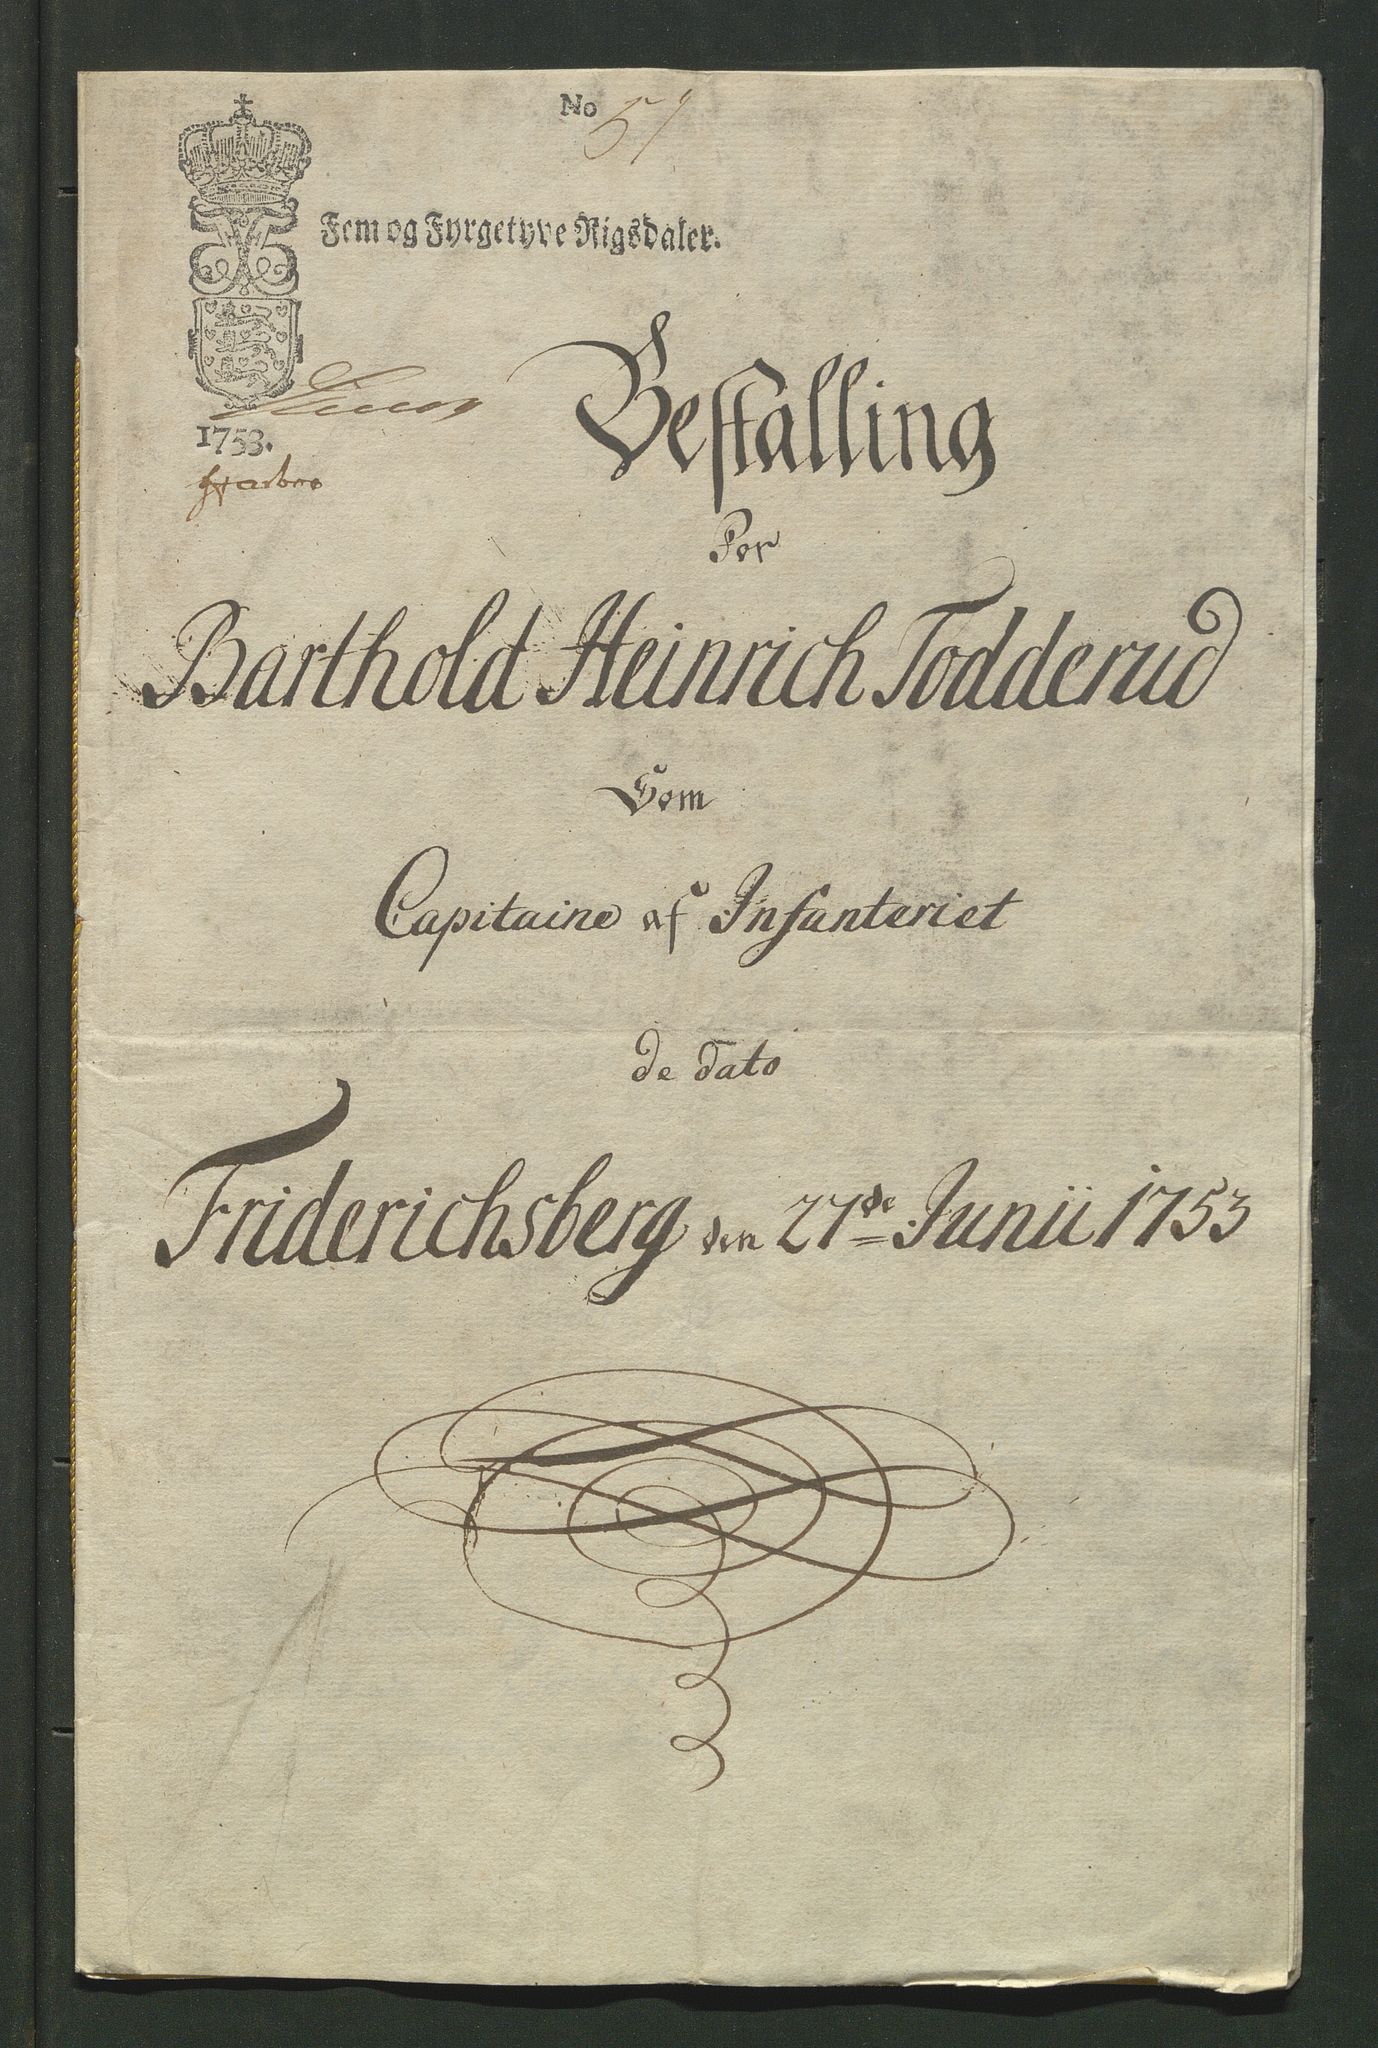 No 51
Fem og Fyrgetyve Rigsdaler.
1753.
Bestalling
For
Barthold Heinrich Todderud
Som
Capitaine af Infanteriet
de Dato
Friderichsberg den 27de Junii 1753